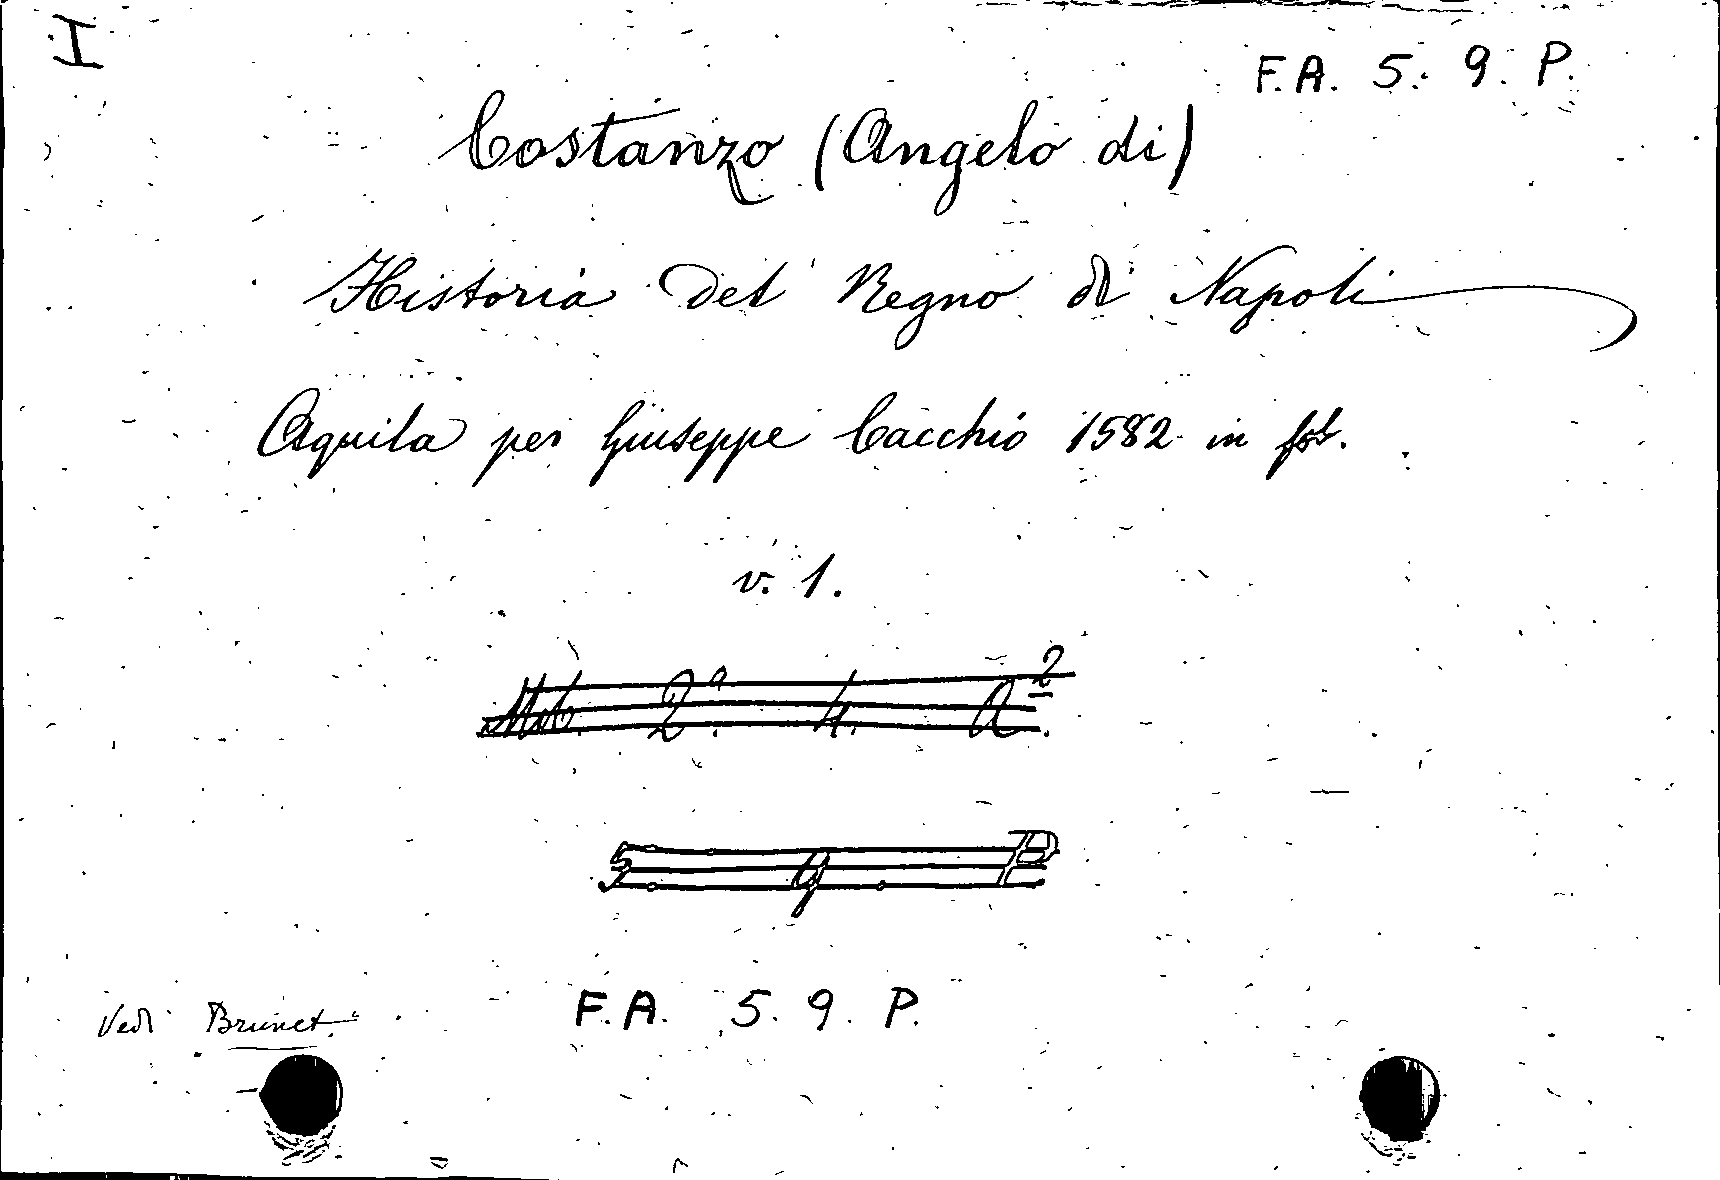 I
F.A. 5. 9. P.
Costanzo (Angelo di)
Historia del Regno di Napoli
Aquila per Giuseppe Cacchio 1582 in fol.
v. 1.
2ª. 4. A².
5. 9. P
Vedi Brunet
F.A. 5. 9. P.